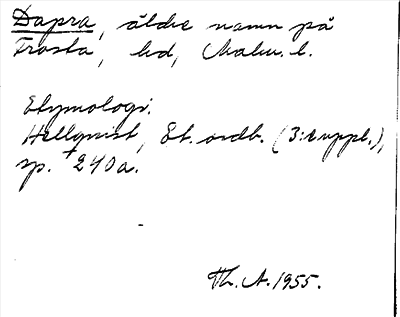 Dapra, äldre namn på
Frosta, hd, Malm. l.
Etymologi.
Hellquist, Et. ordb. (3:e uppl.),
sp. 240a.
Th. A. 1955.